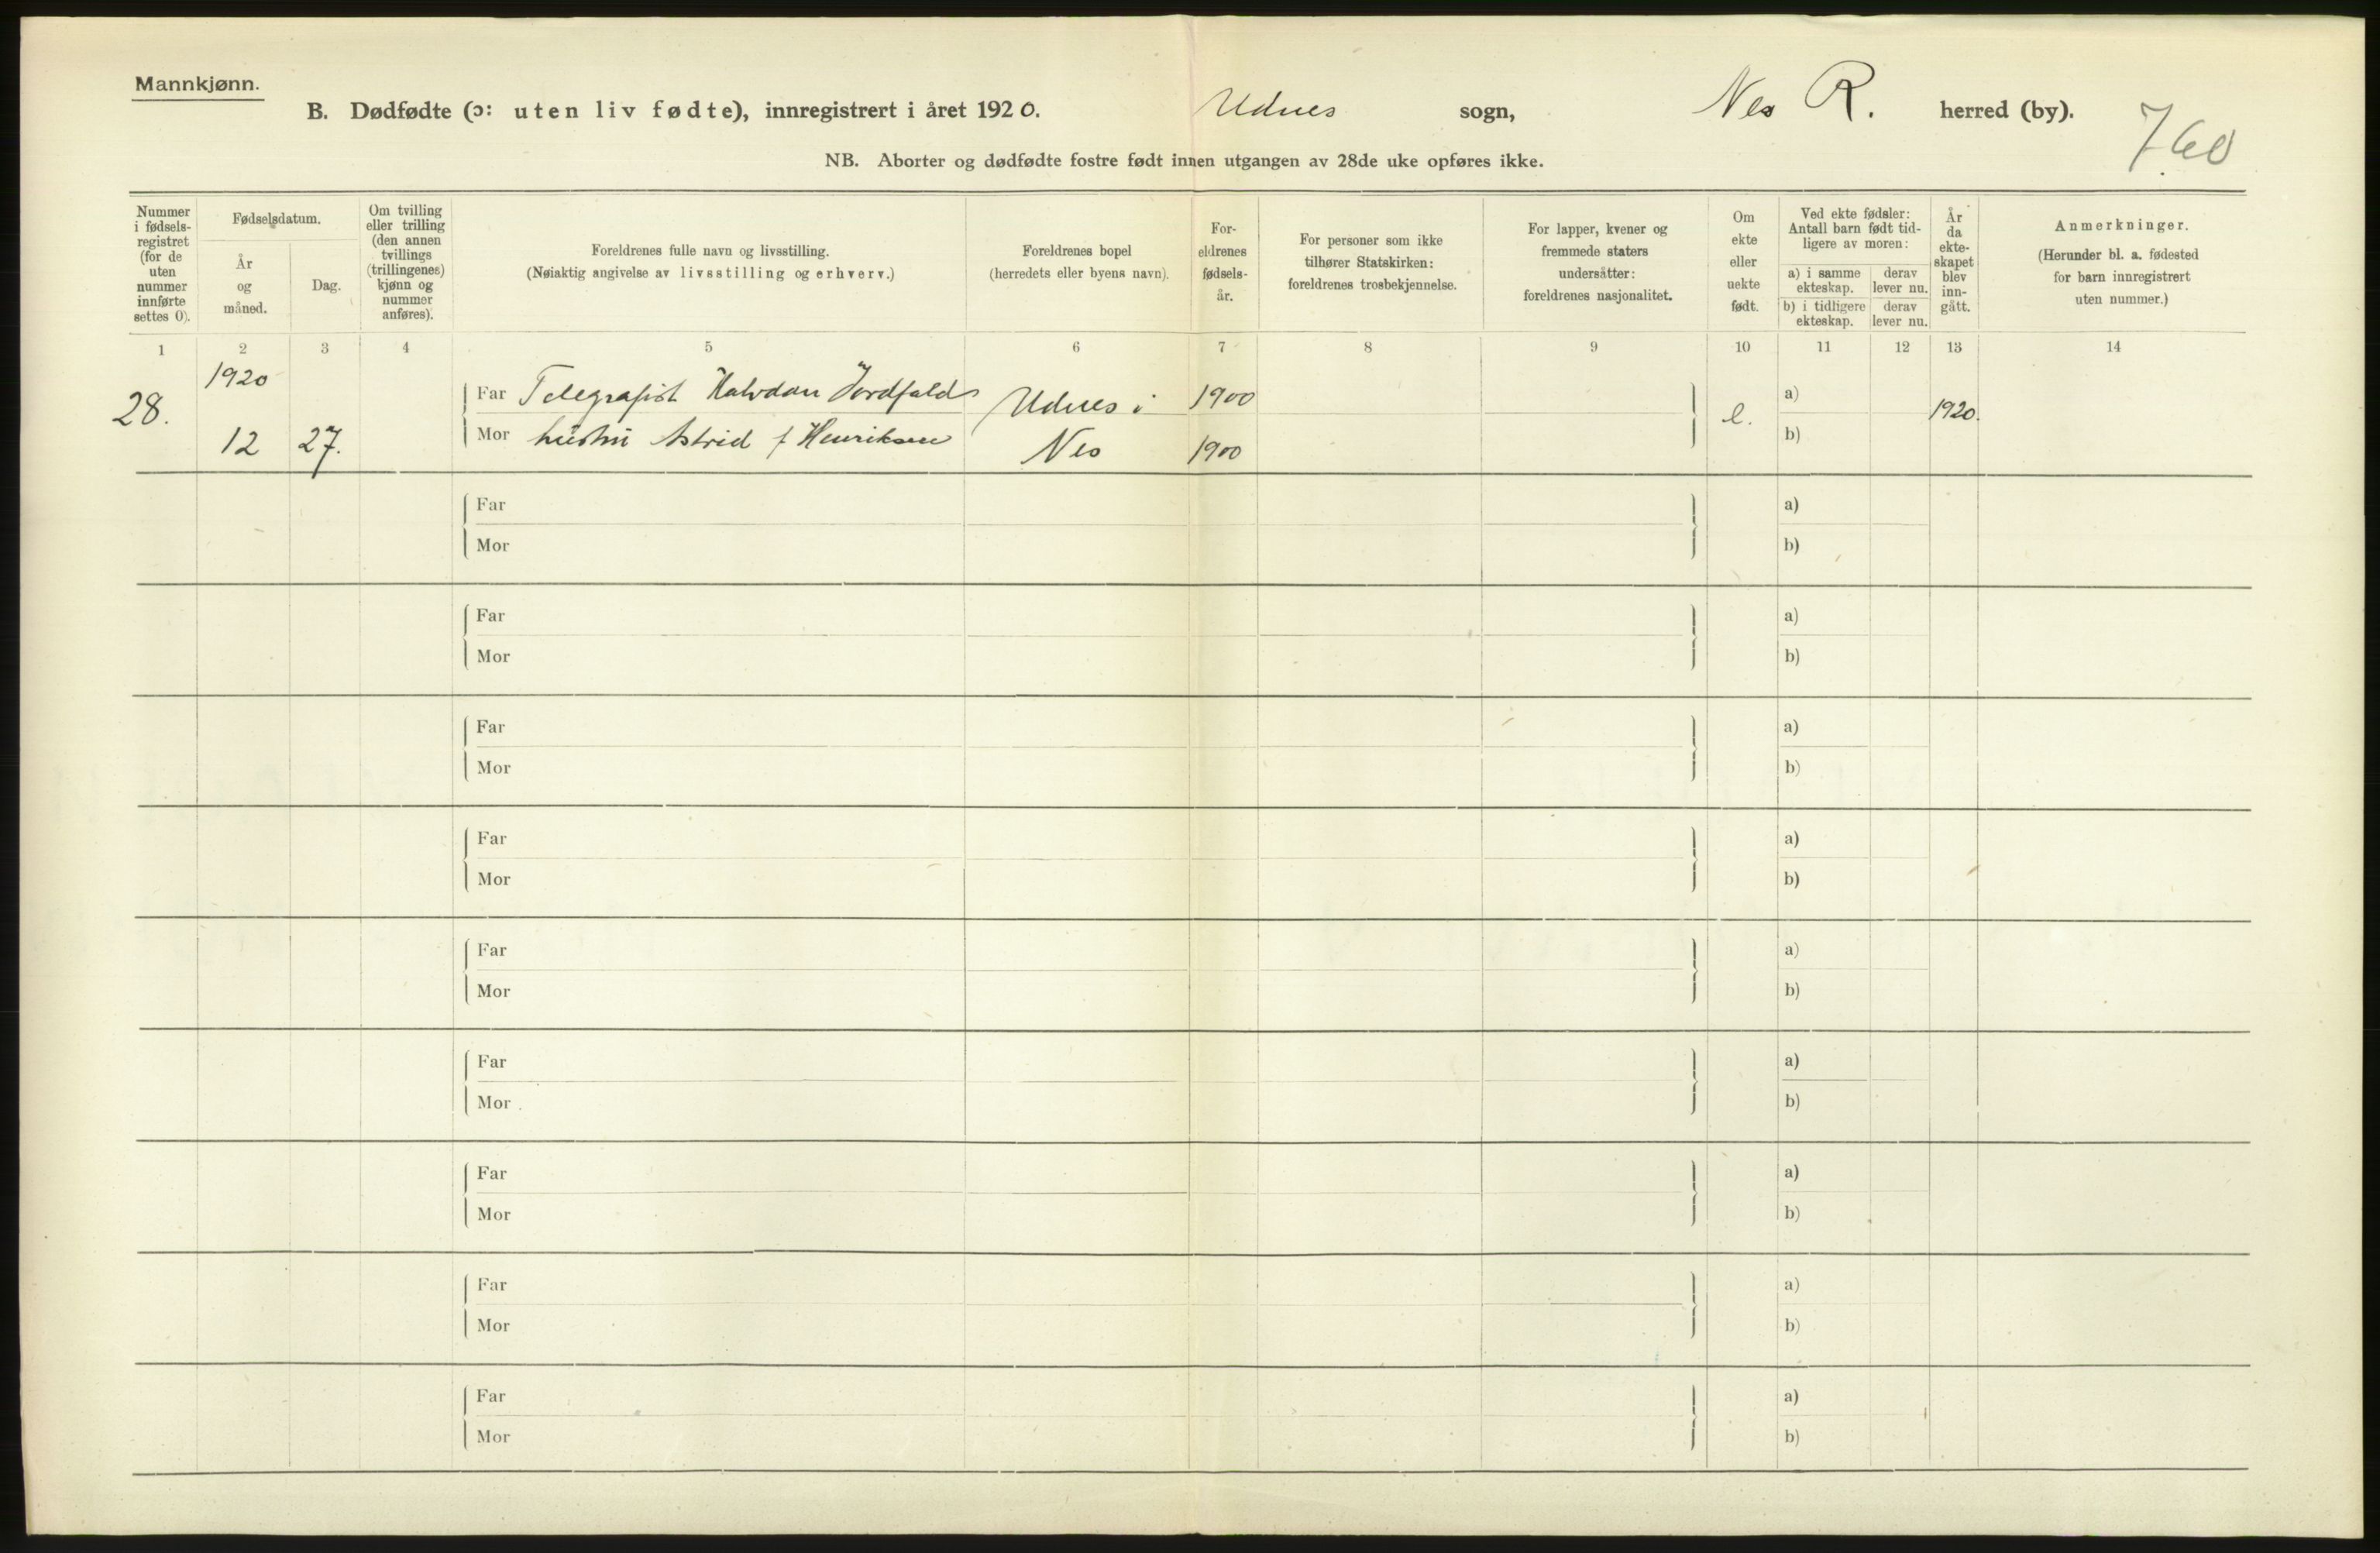 Mannkjønn.
B. Dødfødte (ɔ: uten liv fødte), innregistrert i året 1920. Udnes sogn, Nes R. herred (by).
760
NB. Aborter og dødfødte fostre født innen utgangen av 28de uke opføres ikke.
Nummer
i fødsels-
registret
(for de
uten
nummer
innførte
settes 0).
Fødselsdatum.
År
og
måned.
Dag.
Om tvilling
eller trilling
(den annen
tvillings
(trillingenes)
kjønn og
nummer
anføres).
Foreldrenes fulle navn og livsstilling.
(Nøiaktig angivelse av livsstilling og erhverv.)
Foreldrenes bopel
(herredets eller byens navn).
For-
eldrenes
fødsels-
år.
For personer som ikke
tilhører Statskirken:
foreldrenes trosbekjennelse.
For lapper, kvener og
fremmede staters
undersåtter:
foreldrenes nasjonalitet.
Om
ekte
eller
uekte
født.
Ved ekte fødsler:
Antall barn født tid-
ligere av moren:
a) i samme
ekteskap.
derav
lever nu.
b) i tidligere
ekteskap.
derav
lever nu.
År
da
ekte-
skapet
blev
inn-
gått.
Anmerkninger.
(Herunder bl. a. fødested
for barn innregistrert
uten nummer.)
1 2 3 4 5 6 7 8 9 10 11 12 13 14
1920
28.
12 27.
Far Telegrafist Halvdan Jordfald Udnes i 1900 a)
e. 1920.
Mor hustru Astrid f Henriksen Nes 1900 b)
Far a)
Mor b)
Far a)
Mor b)
Far a)
Mor b)
Far a)
Mor b)
Far a)
Mor b)
Far a)
Mor b)
Far a)
Mor b)
Far a)
Mor b)
Far a)
Mor b)